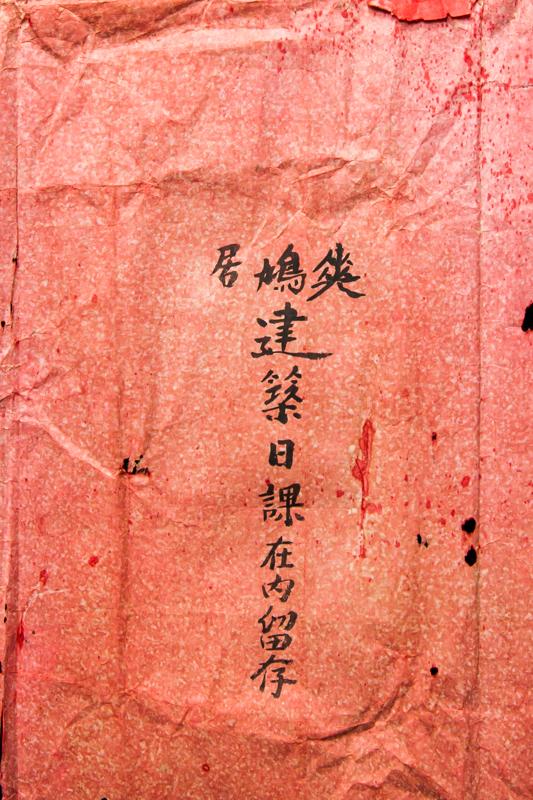 爽鳩居
建築日課在内留存